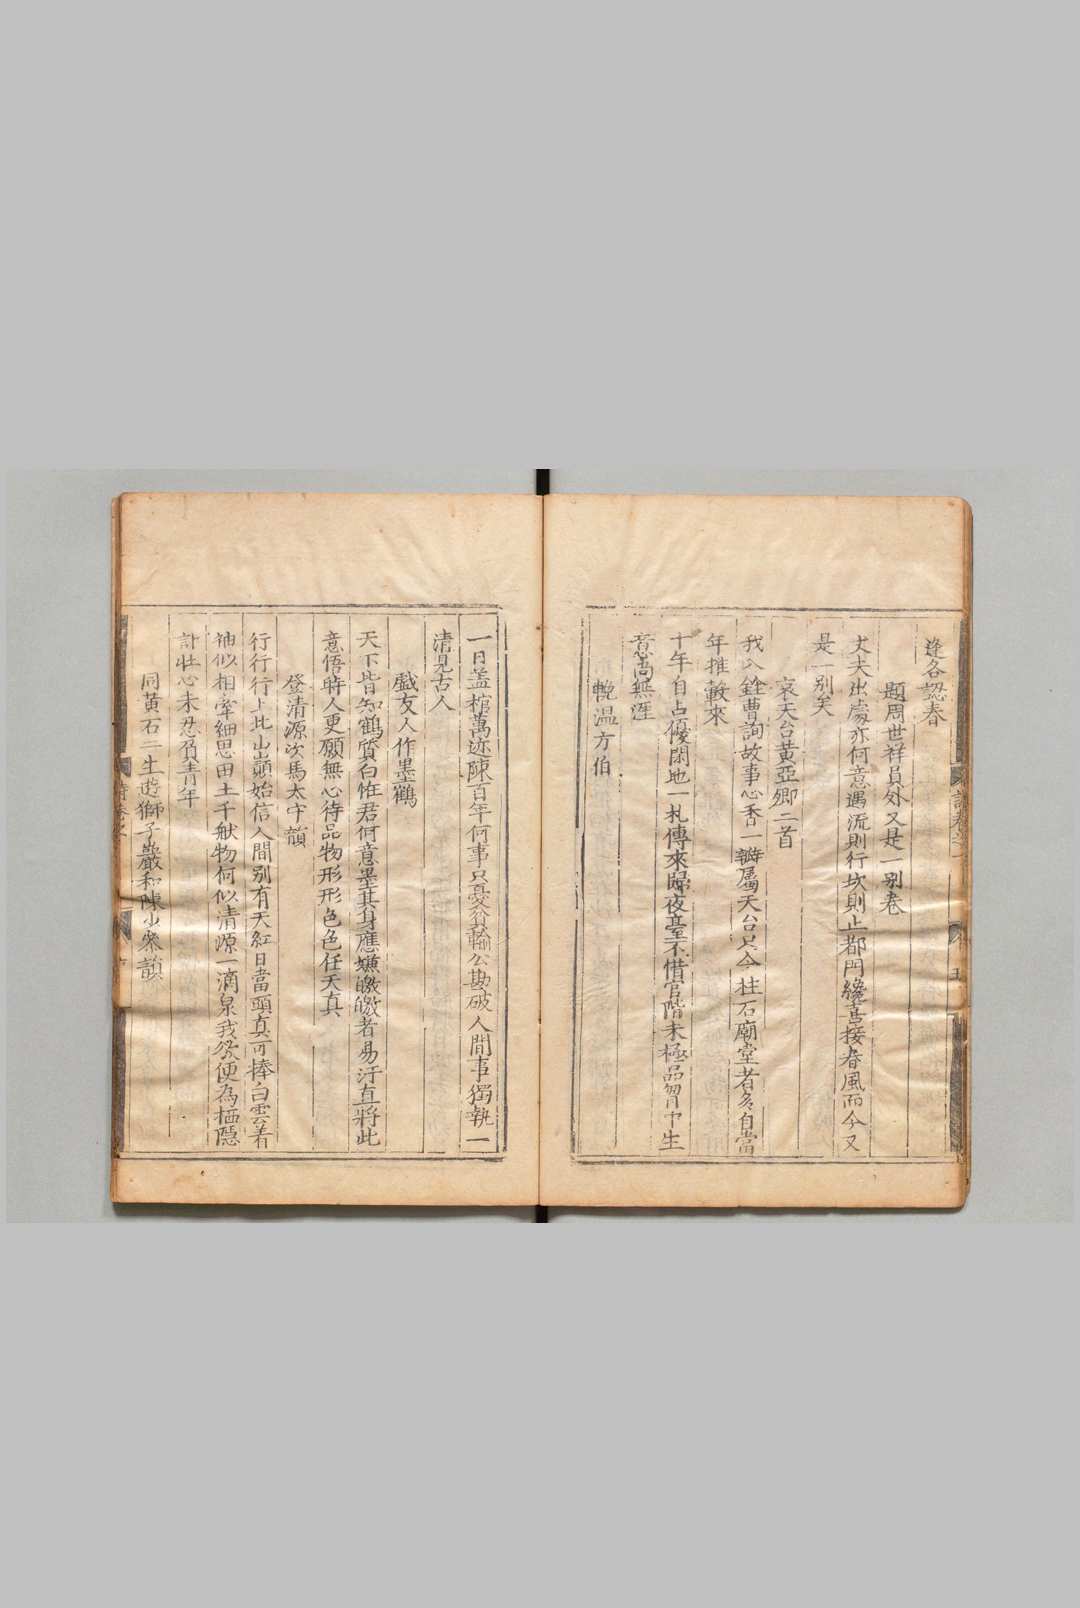 逢各認春
題周世祥員外又是一別卷
丈夫出處亦何意遇流則行坎則止都門纔喜接春風而今又
是一別矣
哀天台黃亞卿二首
我入銓曹詢故事心香一瓣屬天台只今柱石廟堂者多自當
年推轂來
十年自占優閑地一札傳來歸夜臺不惜官階未極品胷中生
意尚無涯
輓温方伯
一日盖棺萬迹陳百年何事只憂貧輸公勘破人間事獨執一
清見古人
戲友人作墨鶴
天下皆知鶴質白恠君何意墨其身應嫌皦皦者易汙直將此
意悟時人更願無心待品物形形色色任天真
登清源次馬太守韻
行行行上此山巔始信人間别有天紅日當頭真可捧白雲着
袖似相牽細思田土千猷物何似清源一滴泉我欲便為栖隱
計壯心未忍負青年
同黃石二生遊獅子巖和陳少參韻